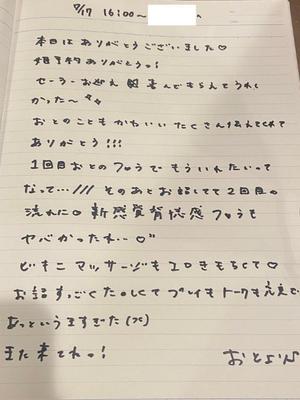 9/17 16:00〜
本日はありがとうございました♡
姫予約ありがとうっ!
セーラーお迎え 喜んでもらえてうれし
かった〜
おとのこともかわいいたくさん伝えてくれて
ありがとう!!!
1回目おとのフロうでもういれたいって
なって…/// そのあとお話してて2回目の
流れに♡ 新感覚背徳感フロうも
ヤバかったねぃ♡
ビキニマッサージもエロきもちくて♡
お話すっごくたのしくてプレイもトークも
あっというますぎた(笑)
また来てねっ!
おとより